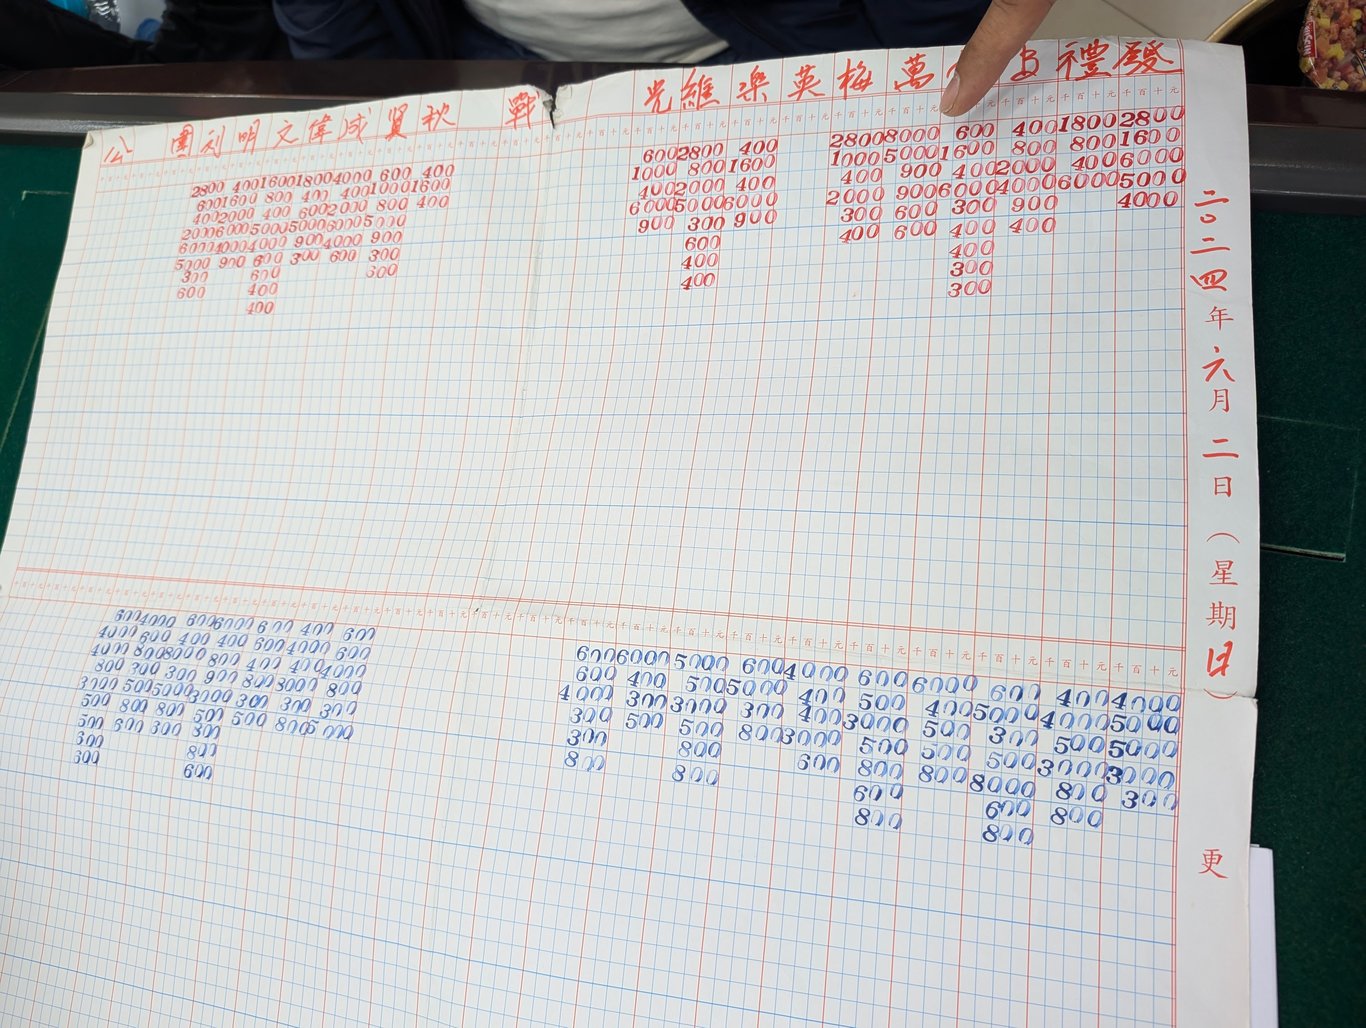 公 團 利 明 文 偉 成 賢 秋 戰 光 維 樂 英 梅 萬 B 禮 發
2800 400 1600 1800 4000 600 400
600 1600 800 400 400 1000 1600
400 2000 400 600 2000 800 400
2000 6000 5000 5000 6000 5000
6000 4000 4000 900 4000 900
5000 900 600 300 600 300
300 600 300
600 400
400
600 2800 400
1000 800 1600
400 2000 400
6000 5000 6000
900 300 900
600
400
400
2800 8000 600 400 1800 2800
1000 5000 1600 800 800 1600
400 900 400 2000 400 6000
2000 900 6000 4000 6000 5000
300 600 300 900 4000
400 600 400 400
400
300
300
二〇二四年六月二日（星期日）
更
600 4000 600 6000 600 400 600
4000 600 400 400 600 4000 600
4000 800 8000 800 400 400 4000
800 300 300 900 800 3000 800
3000 500 5000 3000 300 300 300
500 800 800 500 500 800 5000
500 600 300 300
300 800
600 600
600 6000 5000 600 4000 600 6000 600 400 4000
600 400 500 5000 400 500 400 5000 4000 5000
4000 300 3000 300 400 3000 500 300 500 5000
300 500 500 800 3000 500 500 500 3000 3000
300 800 600 800 800 8000 800 300
800 800 600 600 800
800 800